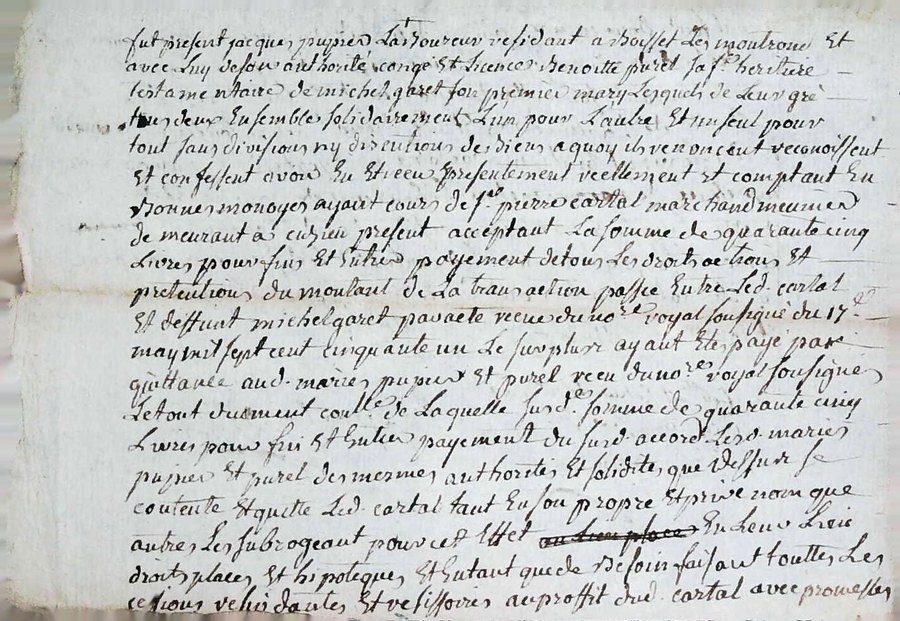 fut present jacques pupier Laboureur residant a Boisset Les montrond Et
avec Luy de son authorité congé et Licence Benoitte purel sa fe heritiere
testamentaire de michel garet son premier mary Lesquels de Leur gré
tous deux Ensemble solidairement L'un pour L'autre Et un seul pour
tout sans divisions ny discutions de Biens a quoy ils renoncent reconoissent
Et confessent avoir Eu Et receu presentement reellement et comptant En
Bonnes monoyes ayant cours de sr pierre cartal marchand meunier
de meurant a cuzieu present acceptant La somme de quarante cinq
Livres pour fins Et Entier payement de tous Les droits actions Et
pretentions du montant de La transaction passée Entre Led. cartal
Et deffunt michel garet par acte receu du nore royal soussigné du 17e
may mil sept cent cinquante un Le surplus ayant Eté payé par
quittance aud. maries pupier Et purel receu du nore royal soussigné
Le tout duement conlle de Laquelle susd.e somme de quarante cinq
Livres pour fin Et Entier payement du susd. accord Lesd. maries
pupier Et purel des mesmes authorités Et solidités que Dessus se
contente Et quitte Led. cartal tant En son propre Et privé nom que
autres Les subrogeant pour cet Effet en Leur place En Leur Lieu
droits places Et hipoteques Et Entant que de Besoin faisant touttes Les
cessions rehindantes Et resissoires au proffit dud. cartal avec promesses